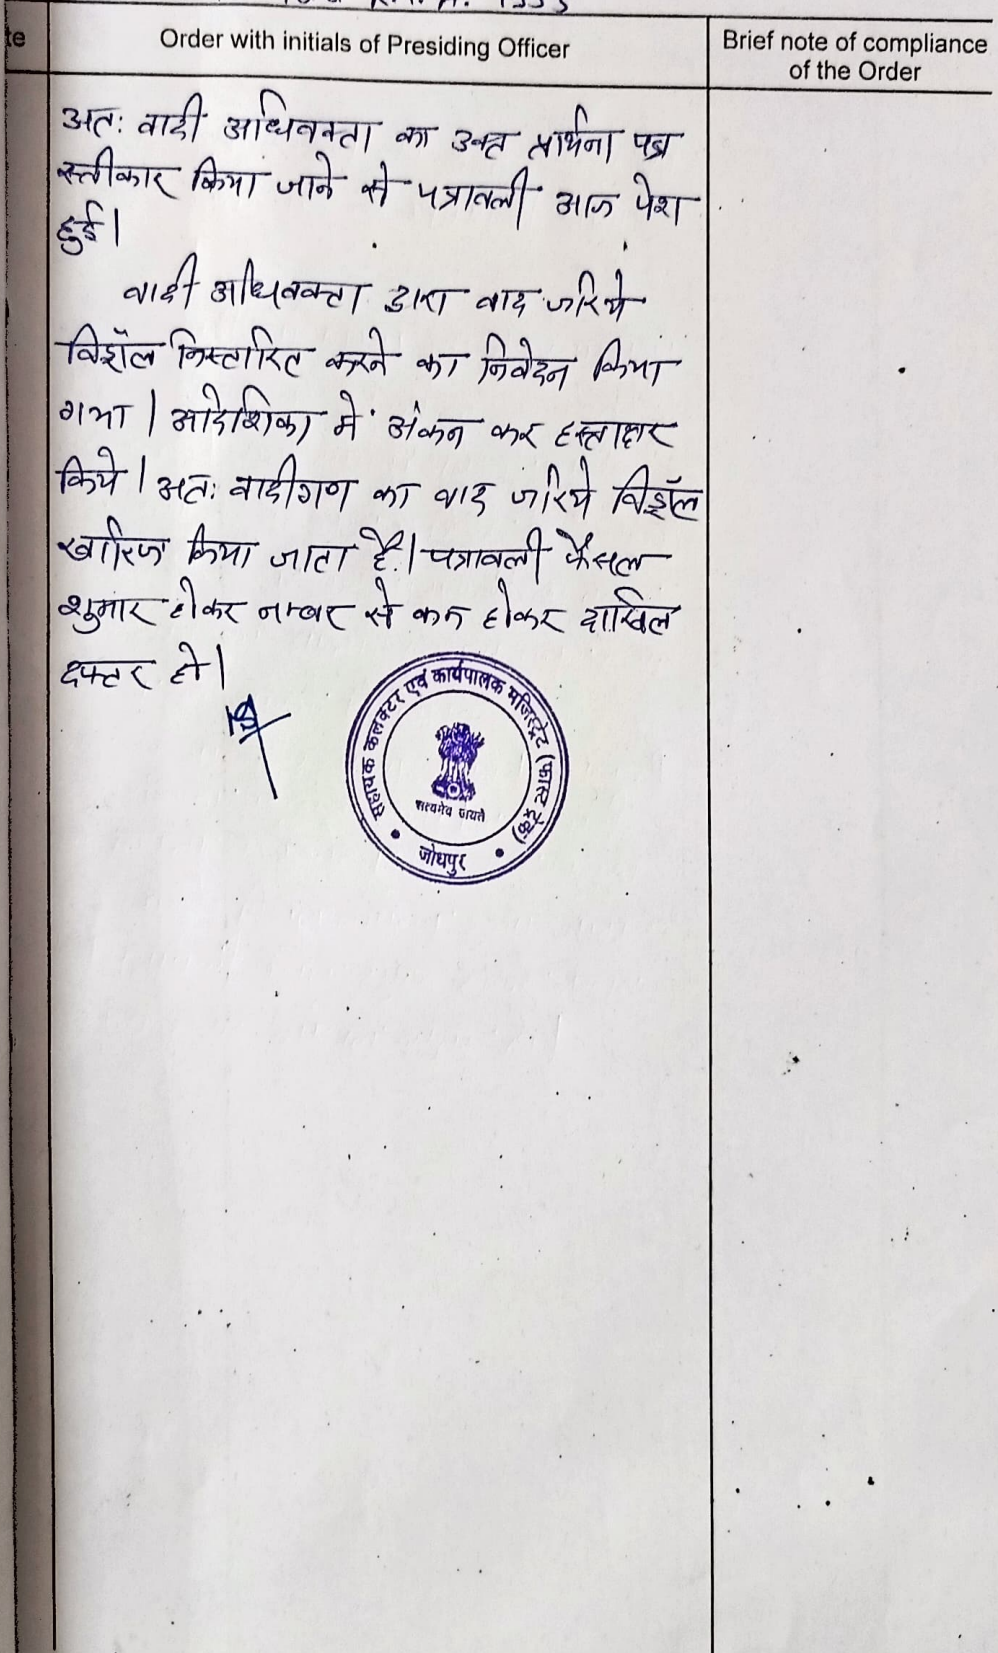 te
Order with initials of Presiding Officer
Brief note of compliance
of the Order
अत: वादी अधिवक्ता का उक्त प्रार्थना पत्र
स्वीकार किया जाने से पत्रावली आज पेश
हुई।
वादी अधिवक्ता द्वारा वाद जरिये
विड्रॉल निस्तारित करने का निवेदन किया
गया। आदेशिका में अंकन कर हस्ताक्षर
किये। अत: वादीगण का वाद जरिये विड्रॉल
खारिज किया जाता है। पत्रावली फैसल
शुमार होकर नम्बर से कम होकर दाखिल
दफ्तर हो।
सहायक कलक्टर एवं कार्यपालक मजिस्ट्रेट (फास्ट ट्रेक)
सत्यमेव जयते
जोधपुर